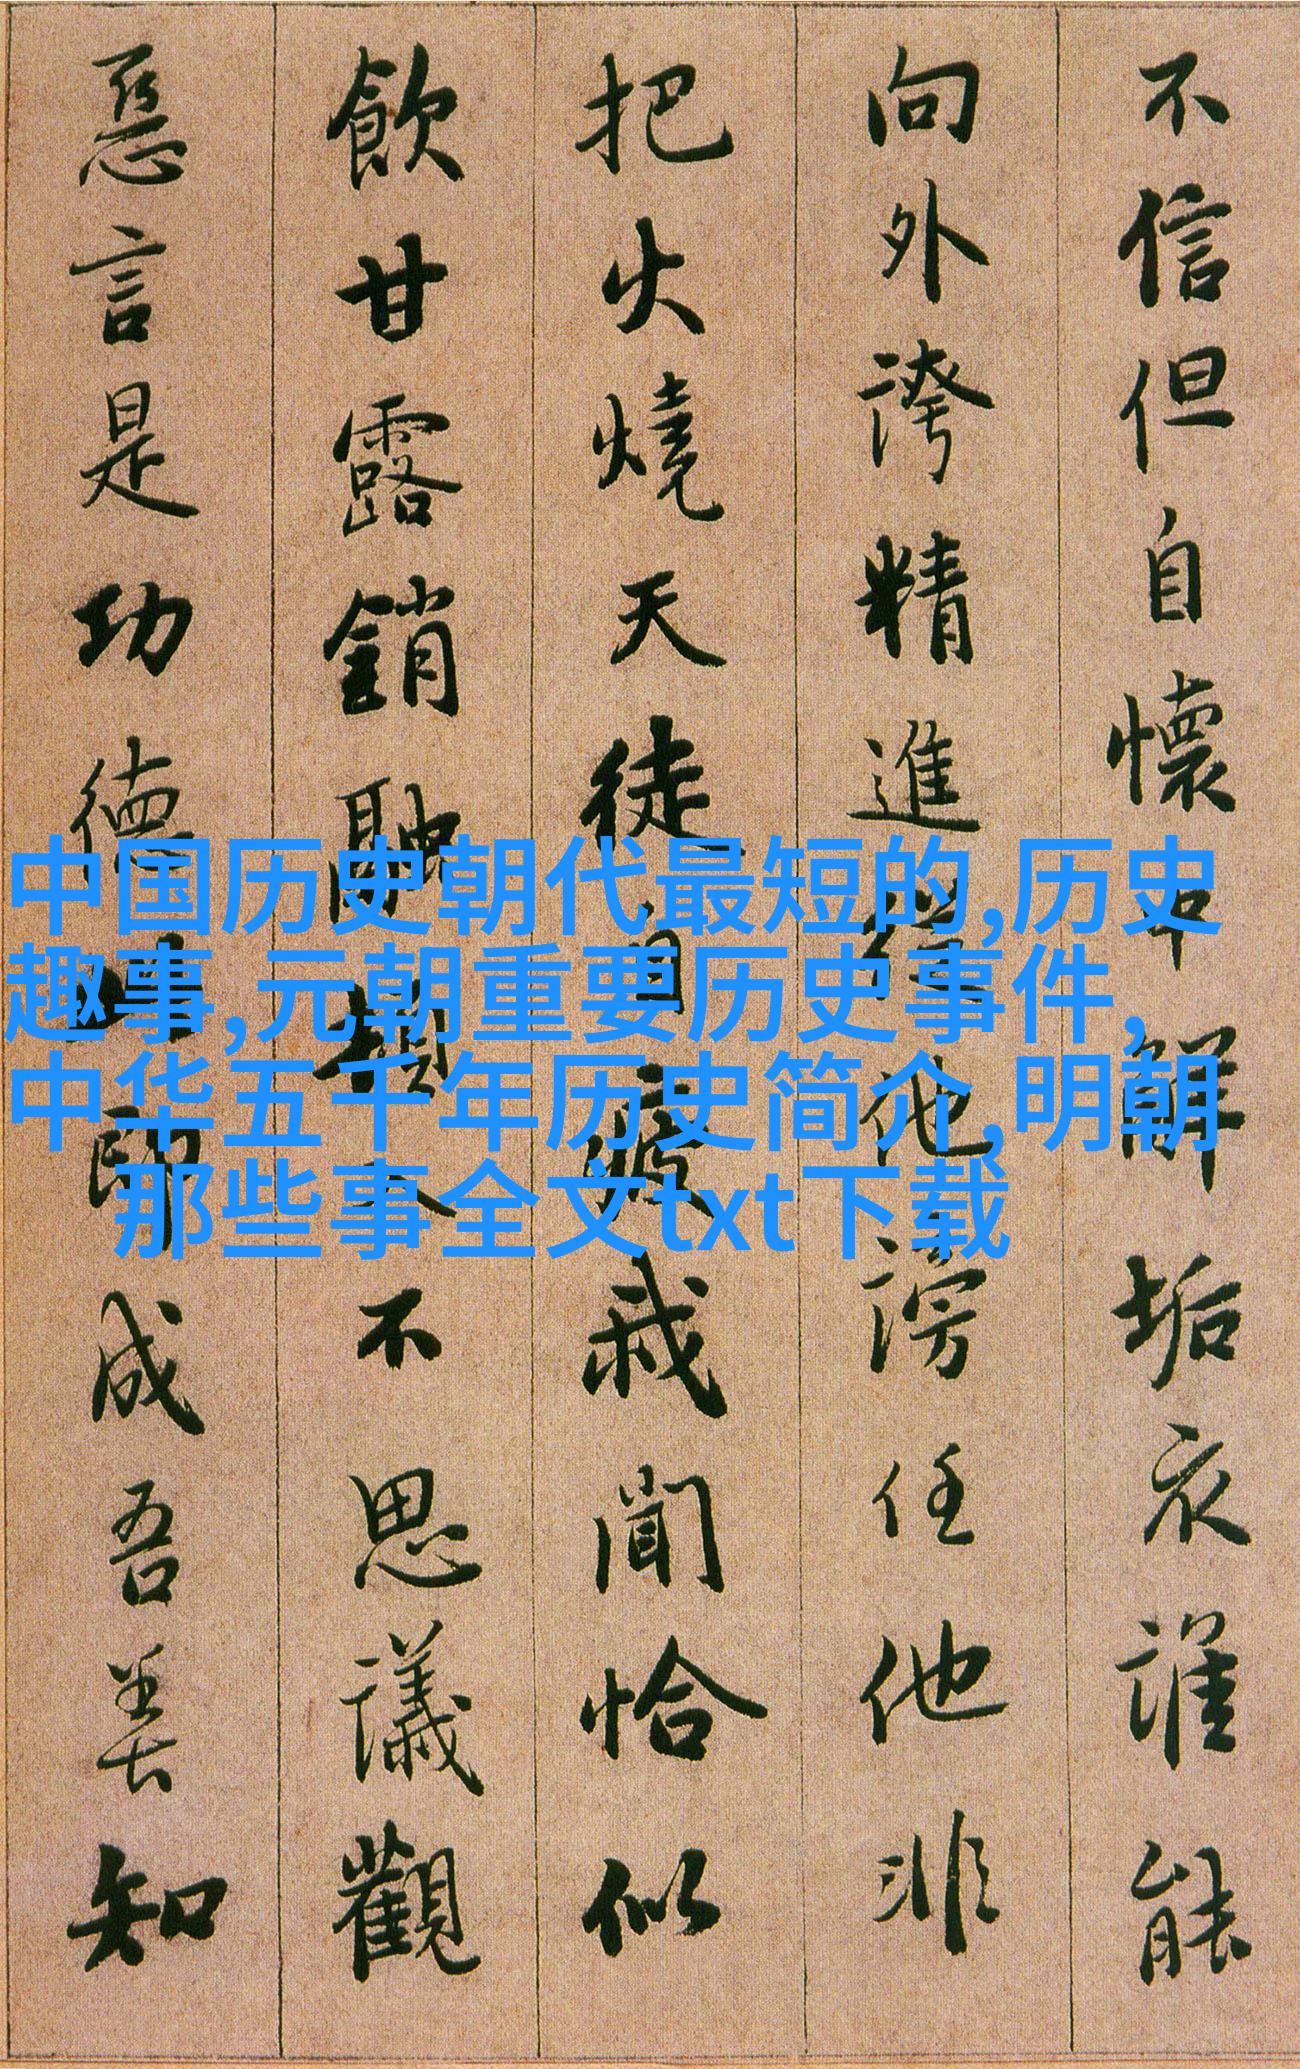 不信但自懷中解垢衣誰能
向外誇精進從他謗任他非
把火燒天徒自疲我聞恰似
飲甘露銷融頓入不思議觀
惡言是功德此即成吾善知
中国历史朝代最短的,历史
趣事,元朝重要历史事件,
中华五千年历史简介,明朝
那些事全文txt下载